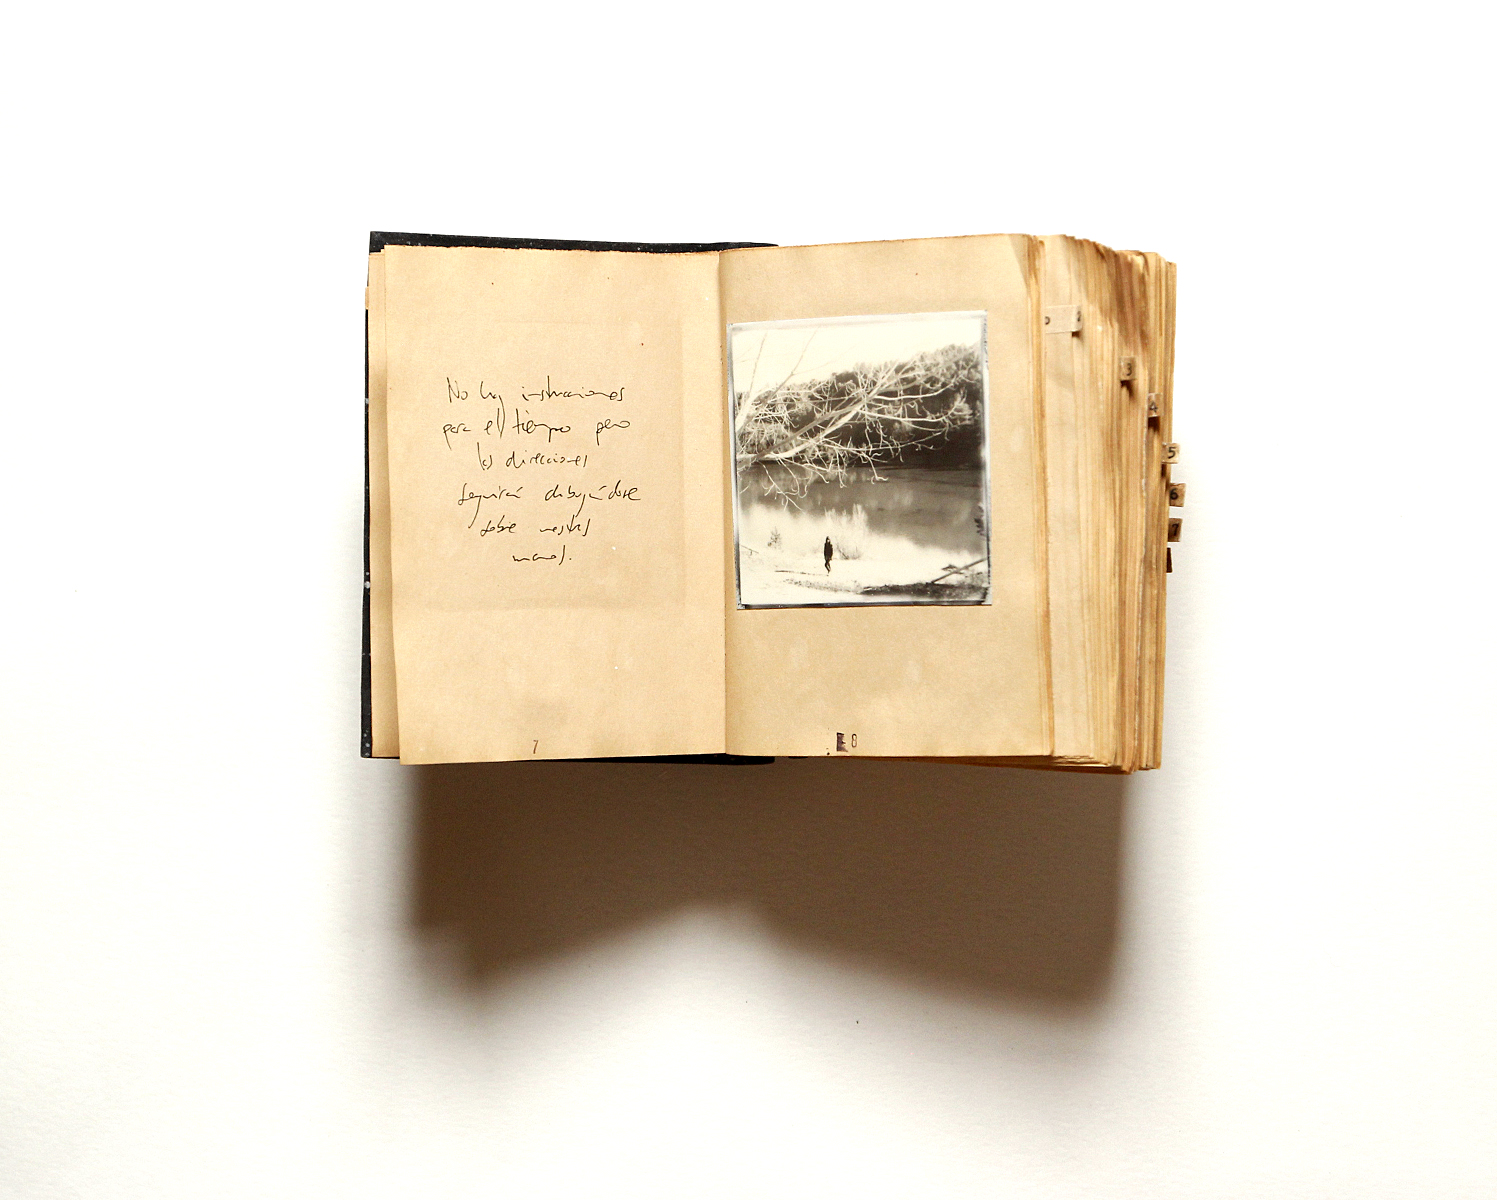 No hay instrucciones
para el tiempo pero
las direcciones
seguirán dibujándose
sobre nuestras
manos.
7
8
3
4
5
6
7